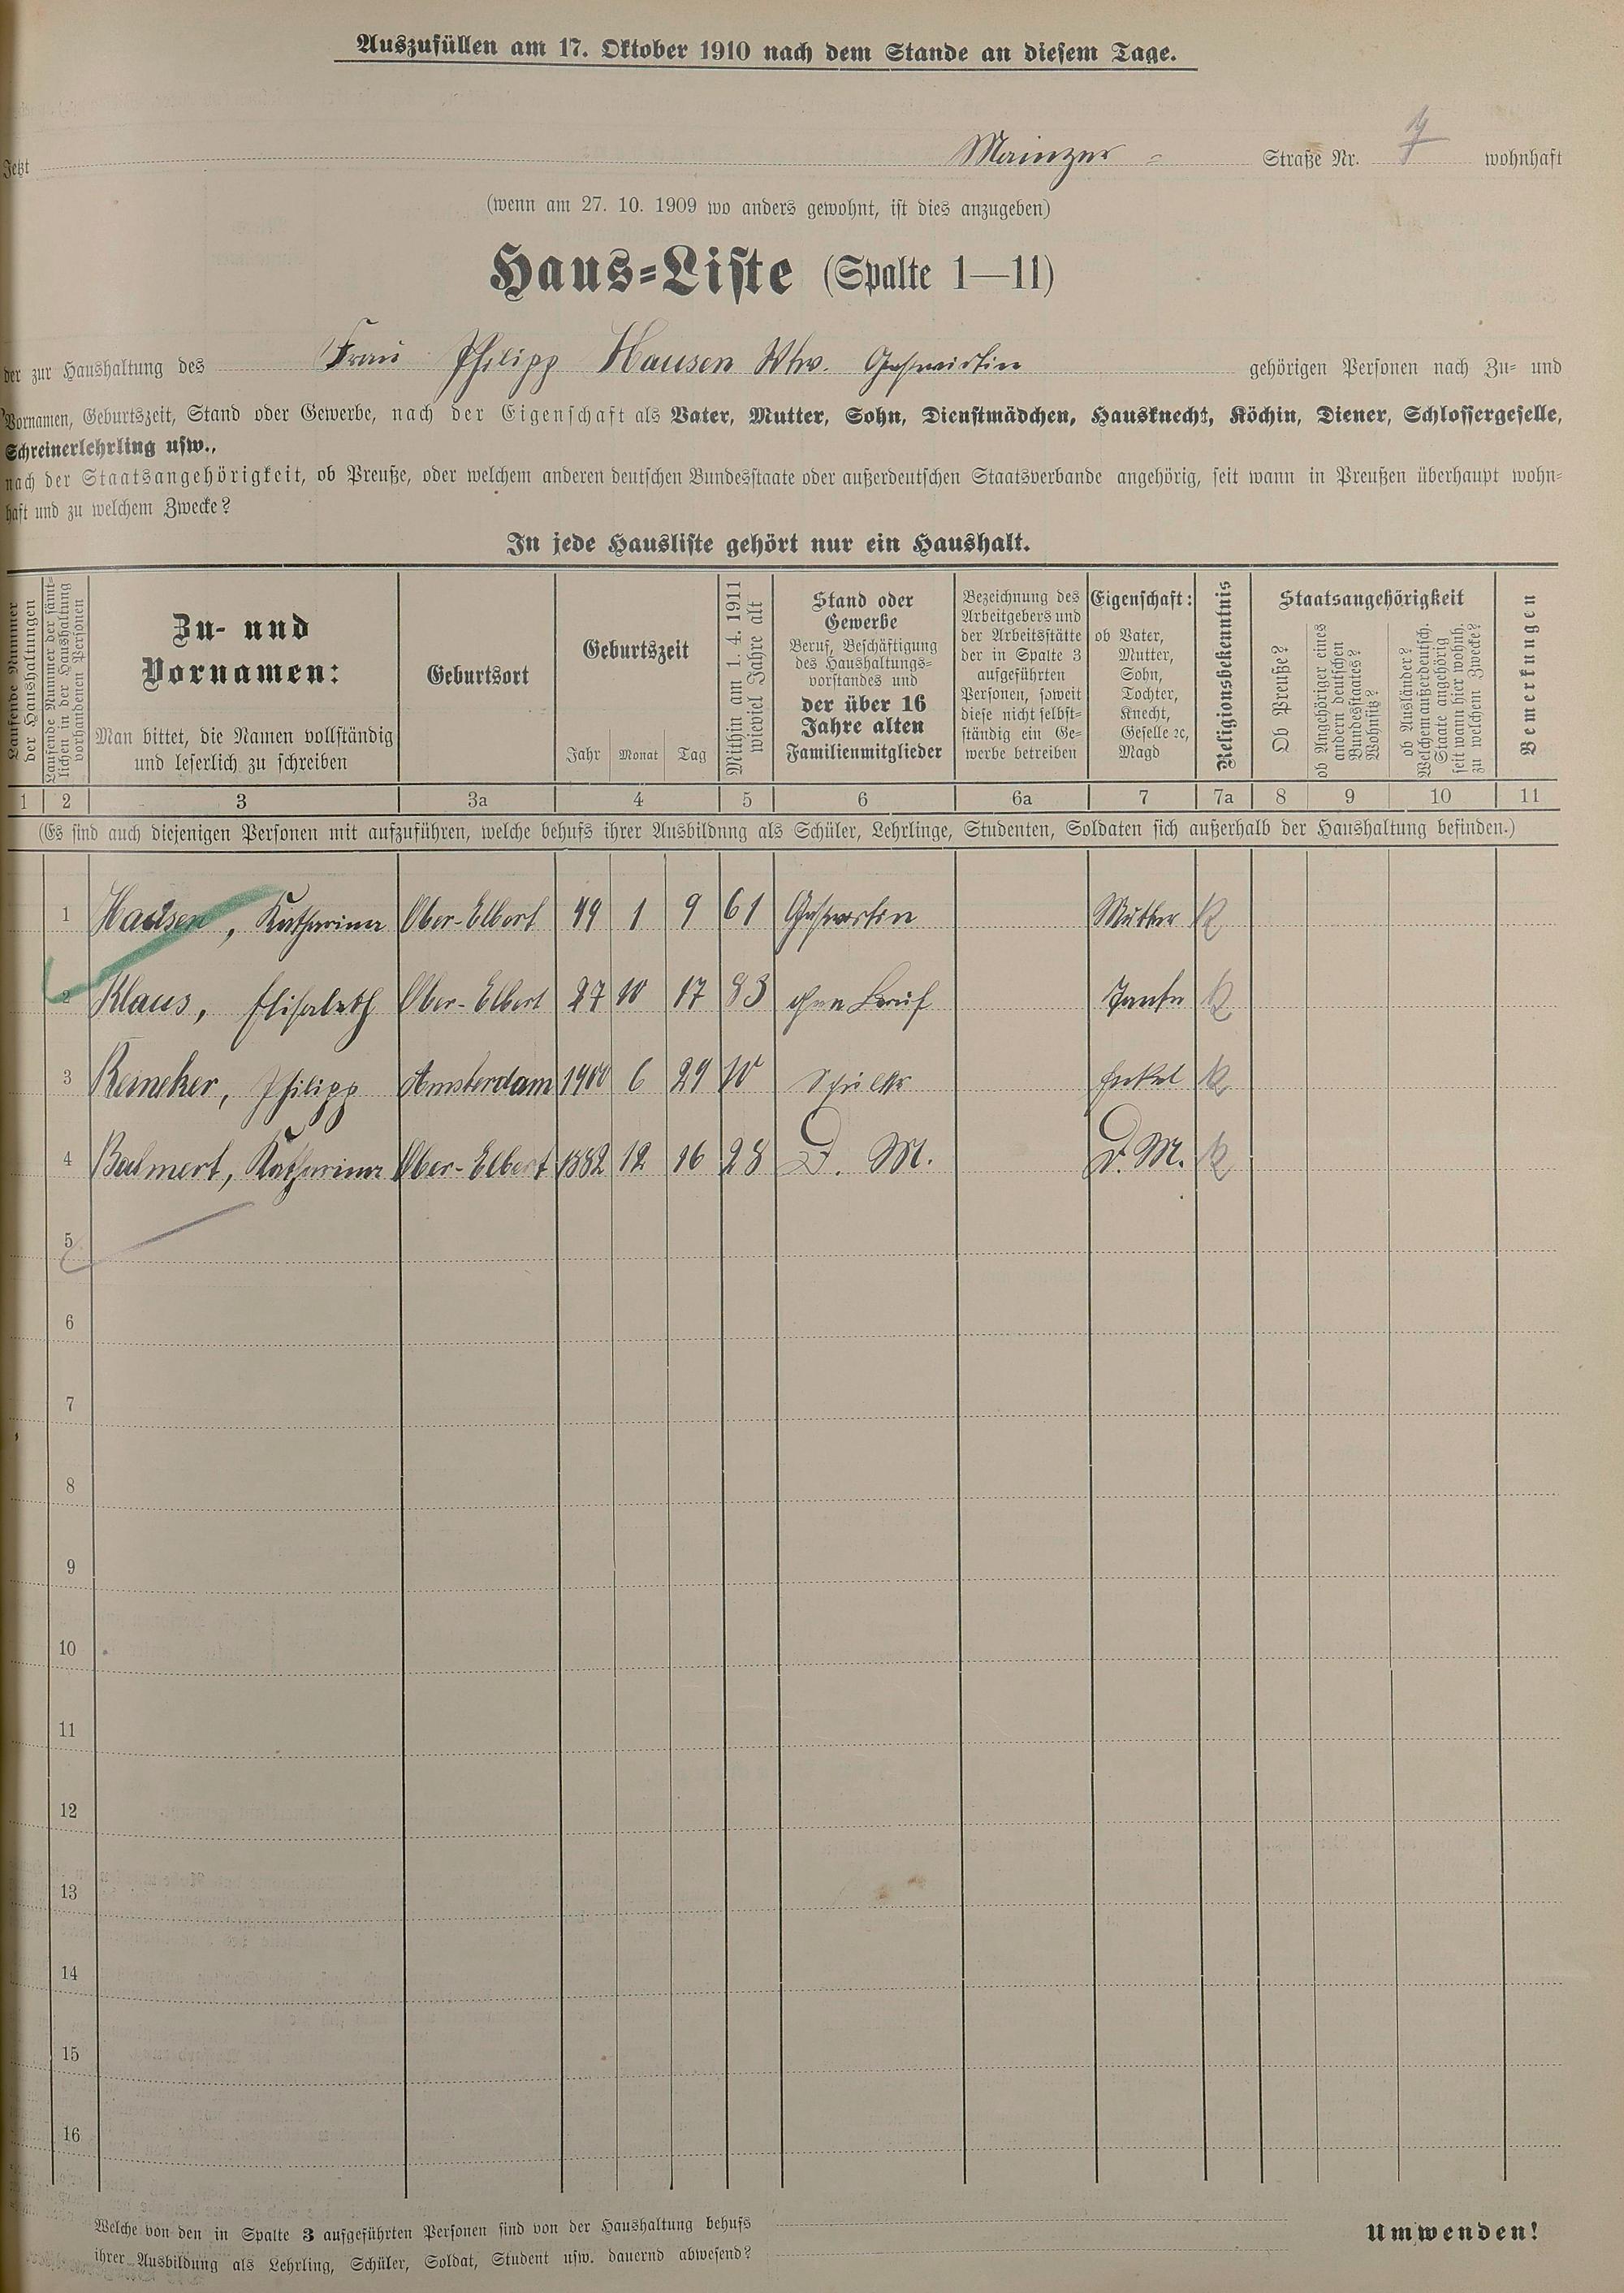 Auszufüllen am 17. Oktober 1910 nach dem Stande an diesem Tage.
Jetzt Mainzer - Straße Nr. wohnhaft
(wenn am 27. 10. 1909 wo anders gewohnt, ist dies anzugeben)
Haus-Liste (Spalte 1—11)
der zur Haushaltung des Frau Philipp Hausen Wtw. Gastwirtin gehörigen Personen nach Zu- und
Vornamen, Geburtszeit, Stand oder Gewerbe, nach der Eigenschaft als Vater, Mutter, Sohn, Dienstmädchen, Hausknecht, Köchin, Diener, Schlossergeselle,
Schreinerlehrling usw.,
nach der Staatsangehörigkeit, ob Preuße, oder welchem anderen deutschen Bundesstaate oder außerdeutschen Staatsverbande angehörig, seit wann in Preußen überhaupt wohn-
haft und zu welchem Zwecke?
In jede Hausliste gehört nur ein Haushalt.
Laufende Nummer
der Haushaltungen
Laufende Nummer der sämt-
lichen in der Haushaltung
vorhandenen Personen
Zu- und
Vornamen:
Man bittet, die Namen vollständig
und leserlich zu schreiben
Geburtsort
Geburtszeit
Jahr Monat Tag
Mithin am 1. 4. 1911
wieviel Jahre alt
Stand oder
Gewerbe
Beruf, Beschäftigung
des Haushaltungs-
vorstandes und
der über 16
Jahre alten
Familienmitglieder
Bezeichnung des
Arbeitgebers und
der Arbeitsstätte
der in Spalte 3
aufgeführten
Personen, soweit
diese nicht selbst-
ständig ein Ge-
werbe betreiben
Eigenschaft:
ob Vater,
Mutter,
Sohn,
Tochter,
Knecht,
Geselle ꝛc,
Magd
Religionsbekenntnis
Staatsangehörigkeit
Ob Preuße?
ob Angehöriger eines
andern deutschen
Bundesstaates?
Wohnsitz?
ob Ausländer?
Welchem außerdeutsch.
Staate angehörig
seit wann hier wohnh.
zu welchen Zwecke?
Bemerkungen
1 2 3 3a 4 5 6 6a 7 7a 8 9 10 11
(Es sind auch diejenigen Personen mit aufzuführen, welche behufs ihrer Ausbildung als Schüler, Lehrlinge, Studenten, Soldaten sich außerhalb der Haushaltung befinden.)
1 Hausen, Katharina Ober-Elbert 49 1 9 61 Gastwirtin Mutter K
2 Klaus, Elisabeth Ober-Elbert 27 10 17 83 ohne Beruf Tante K
3 Reineker, Philipp Amsterdam 1900 6 29 10 Schüler Enkel K
4 Katharina Ober-Elbert 1882 12 16 28 D. M. D. M. K
5
6
7
8
9
10
11
12
13
14
15
16
Welche von den in Spalte 3 aufgeführten Personen sind von der Haushaltung behufs
ihrer Ausbildung als Lehrling, Schüler, Soldat, Student usw. dauernd abwesend?
Umwenden!